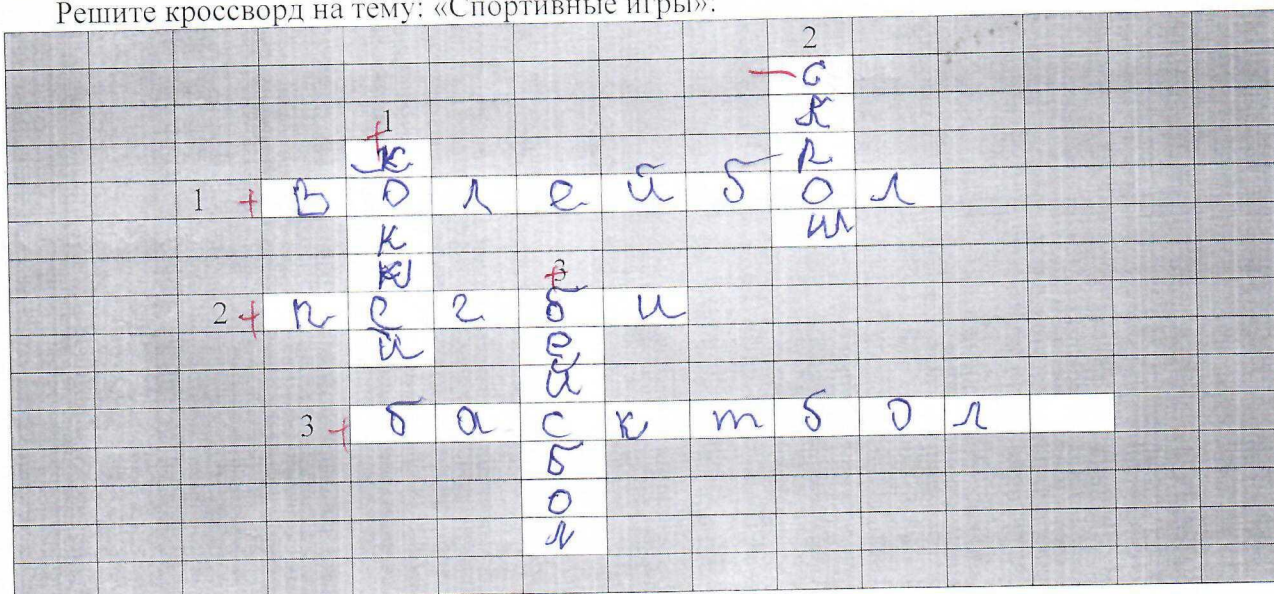 Решите кроссворд на тему: «Спортивные игры».
2
— С
+ 1 К
К Р
1 + В о л е й б о л
к ш
к + 3
2 + р е г б и
й е
й
3 + б а с к т б о л
б
о
л